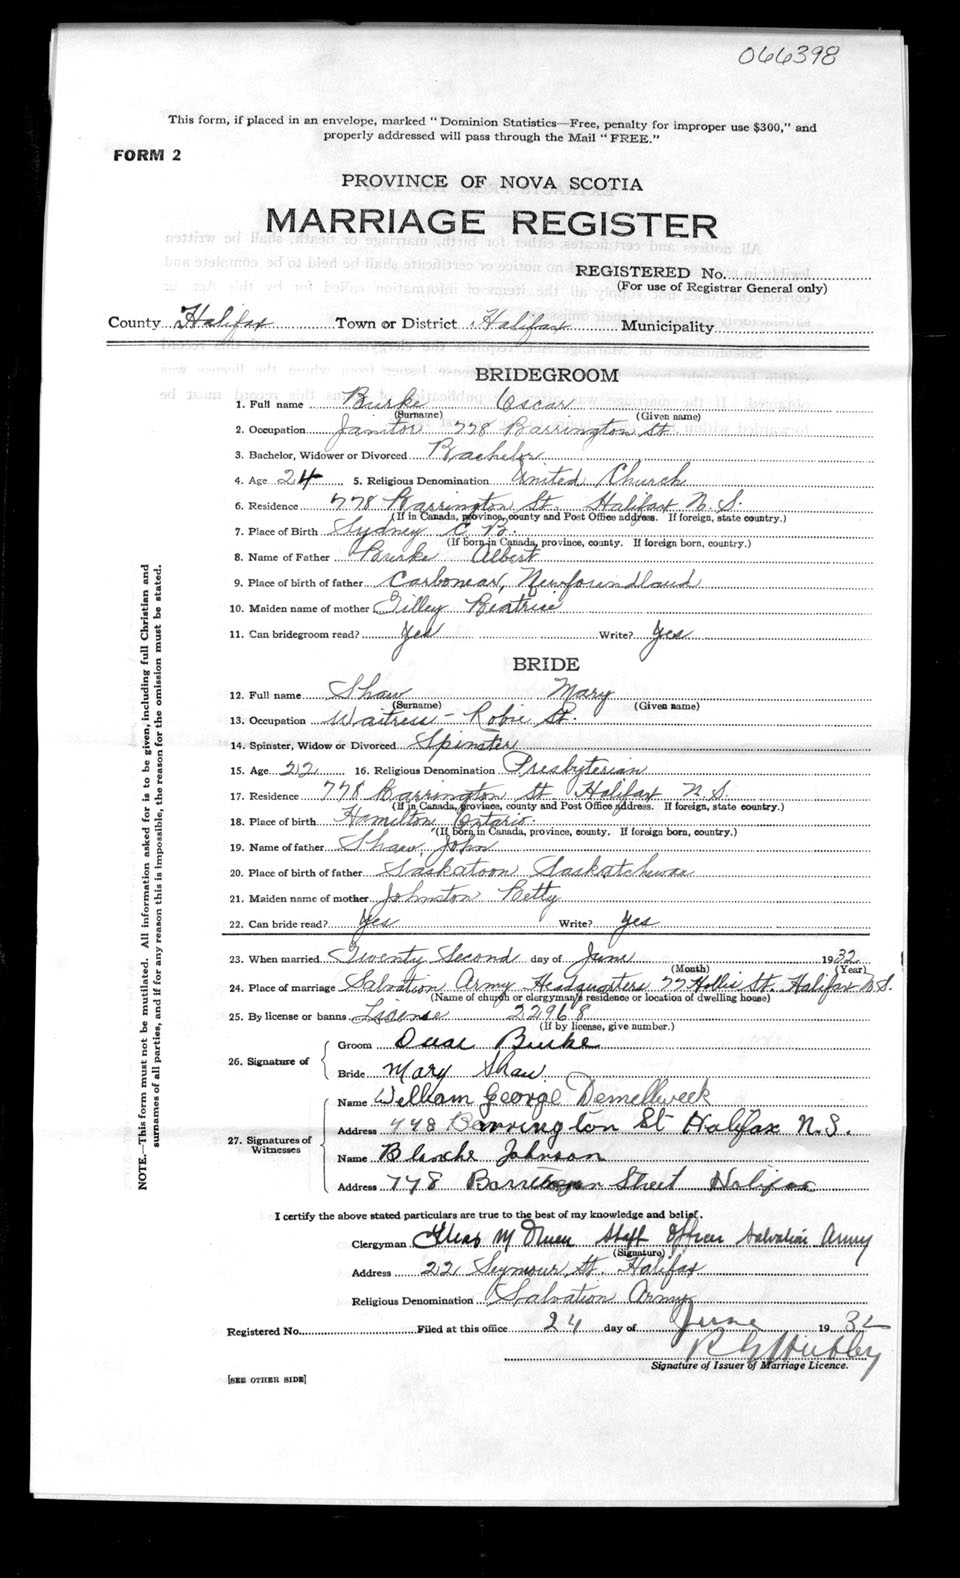 066398
This form, if placed in an envelope, marked "Dominion Statistics—Free, penalty for improper use $300," and
properly addressed will pass through the Mail "FREE."
FORM 2
PROVINCE OF NOVA SCOTIA
MARRIAGE REGISTER
REGISTERED No.
(For use of Registrar General only)
County Halifax Town or District Halifax Municipality
BRIDEGROOM
1. Full name Burke Oscar
(Surname) (Given name)
2. Occupation Janitor 778 Barrington St.
3. Bachelor, Widower or Divorced Bachelor
4. Age 24 5. Religious Denomination United Church
6. Residence 778 Barrington St. Halifax N.S.
(If in Canada, province, county and Post Office address. If foreign, state country.)
7. Place of Birth Sydney C B.
(If born in Canada, province, county. If foreign born, country.)
8. Name of Father Burke Albert
9. Place of birth of father Carbonear, Newfoundland
10. Maiden name of mother Tilley Beatrice
11. Can bridegroom read? Yes Write? Yes
BRIDE
12. Full name Shaw Mary
(Surname) (Given name)
13. Occupation Waitress - Robie St.
14. Spinster, Widow or Divorced Spinster
15. Age 22 16. Religious Denomination Presbyterian
17. Residence 778 Barrington St Halifax N.S.
(If in Canada, province, county and Post Office address. If foreign, state country.)
18. Place of birth Hamilton Ontario.
(If born in Canada, province, county. If foreign born, country.)
19. Name of father Shaw, John
20. Place of birth of father Saskatoon Saskatchewan
21. Maiden name of mother Johnston Betty
22. Can bride read? Yes Write? Yes
23. When married Twenty Second day of June 1932
(Month) (Year)
24. Place of marriage Salvation Army Headquarters 77 Hollis St. Halifax N.S.
(Name of church or clergyman's residence or location of dwelling house)
25. By license or banns License 22968
(If by license, give number.)
26. Signature of
Groom Burke
Bride Mary Shaw
27. Signatures of Witnesses
Name William George
Address 778 Barrington St Halifax N.S.
Name Blanche Johnson
Address 778 Street Halifax
I certify the above stated particulars are true to the best of my knowledge and belief.
Clergyman Staff Officer Salvation Army
(Signature)
Address 22 Seymour St. Halifax
Religious Denomination Salvation Army
Registered No. Filed at this office 24 day of June 1932
Signature of Issuer of Marriage Licence.
[SEE OTHER SIDE]
NOTE.—This form must not be mutilated. All information asked for is to be given, including full Christian and
surnames of all parties, and if for any reason this is impossible, the reason for the omission must be stated.